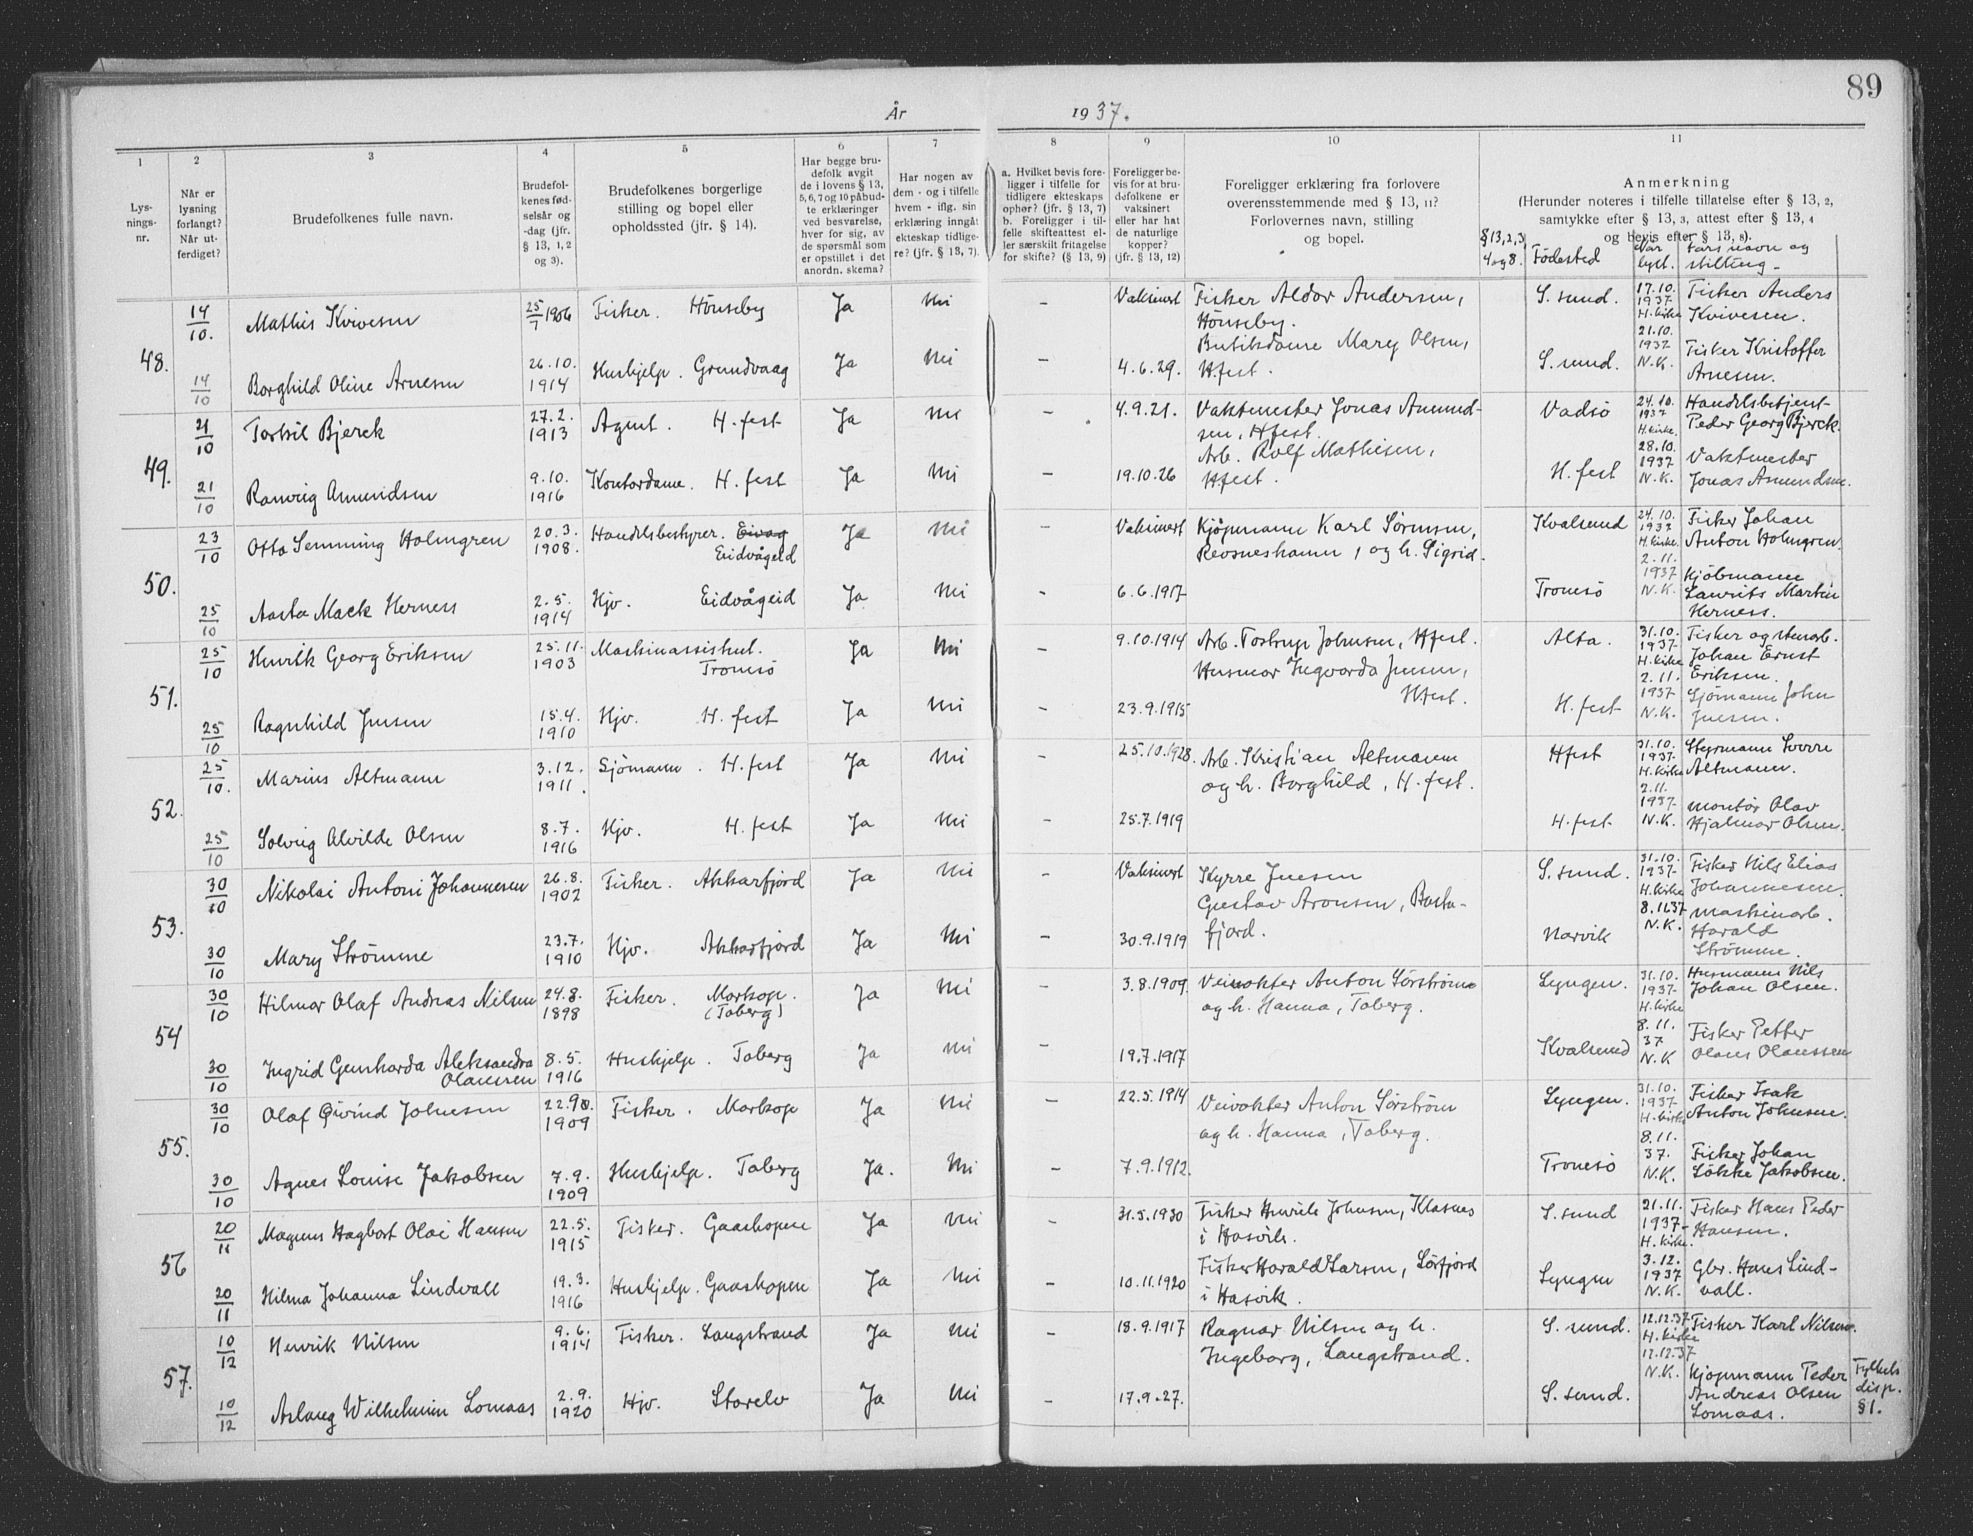 89
År 1937.
1 2 3 4 5 6 7 8 9 10 11
Lysningsnr.
Når er lysning forlangt? Når utferdiget?
Brudefolkenes fulle navn.
Brudefolkenes fødselsår og -dag (jfr. § 13, 1, 2 og 3).
Brudefolkenes borgerlige stilling og bopel eller opholdssted (jfr. § 14).
Har begge brudefolk avgit de i lovens § 13, 5, 6, 7 og 10 påbudte erklæringer ved besvarelse, hver for sig, av de spørsmål som er opstillet i det anordn. skema?
Har nogen av dem - og i tilfelle hvem - iflg. sin erklæring inngått ekteskap tidligere? (jfr. § 13, 7).
a. Hvilket bevis foreligger i tilfelle for tidligere ekteskaps ophør? (jfr. § 13, 7)
b. Foreligger i tilfelle skifteattest eller særskilt fritagelse for skifte? (§ 13, 9)
Foreligger bevis for at brudefolkene er vaksinert eller har hat de naturlige kopper? (jfr. § 13, 12)
Foreligger erklæring fra forlovere overensstemmende med § 13, 11? Forlovernes navn, stilling og bopel.
Anmerkning
(Herunder noteres i tilfelle tillatelse efter § 13, 2, samtykke efter § 13, 3, attest efter § 13, 4 og bevis efter § 13, 8).
§ 13, 2, 3, 4 og 8. Fødested Når lyst. Fars navn og stilling
48. 14/10. Mathis Kvivesen 25/7 1906 Fisker. Hönseby Ja Nei - Vaksinert Fisker Aldor Andersen, Hönseby. S. sund. 17.10. 1937 H. kirke Fisker Anders Kvivesen.
14/10 Borghild Oline Arnesen 26.10. 1914 Hushjelp. Grundvaag Ja Nei - 4.6.29. Butikdame Mary Olsen, Hfest. S. sund. 21.10. 1937 N.K. Fisker Kristoffer Arnesen.
49. 21/10 Torkil Bjerck 27.2. 1913 Agent. H. fest Ja Nei - 4.9.21. Vaktmester Jonas Amundsen, Hfest. Vadsö 24.10. 1937 H. kirke. Handelsbetjent Peder Georg Bjerck.
21/10 Ranveig Amundsen 9.10. 1916 Kontordame. H. fest Ja Nei - 19.10.26 Arb. Rolf Mathisen, Hfest. H. fest 28.10. 1937 N.K. Vaktmester Jonas Amundsen.
50. 23/10 Otto Henning Holmgren 20.3. 1908. Handelsbestyrer. Eidvågeid Ja Nei Vaksinert Kjöpmann Karl Sörensen, og h. Sigrid. Kvalsund 24.10. 1937 H. kirke. Fisker Johan Anton Holmgren.
25/10 Aasta Mack Herness 2.5. 1914 Hjv. Eidvågeid Ja Nei - 6.6.1917 Tromsö 2.11. 1937 N.K. Kjöbmann Laurits Martin Herness.
51. 25/10 Henrik Georg Eriksen 25.11. 1903 Maskinassistent. Tromsö Ja Nei 9.10.1914 Arb. Tostrup Johnsen, Hfest. Alta. 31.10. 1937. H. kirke Fisker og Johan Ernst Eriksen.
25/10 Ragnhild Jensen 15.4. 1910 Hjv. H. fest Ja Nei - 23.9.1915 Husmor Ingvarda Jensen, Hfest. H. fest 2.11. 1937 N.K. Sjömann John Jensen.
52. 25/10. Marius Altmann 3.12. 1911. Sjömann. H. fest Ja Nei - 25.10.1928. Arb. Kristian Altmann og h. Borghild, H. fest. Hfest 31.10. 1937. H. kirke Styrmann Sverre Altmann.
25/10 Solveig Alvilde Olsen 8.7. 1916 Hjv. H. fest Ja Nei - 25.7.1919 H. fest 2.11. 1937. N.K. Montör Olav Hjalmar Olsen.
53. 30/10 Nikolai Antoni Johannesen 26.8. 1902 Fisker. Akkarfjord Ja Nei - Vaksinert Styrre Jensen S. sund. 31.10. 1937. H. kirke Fisker Nils Elias Johannesen.
30/10 Mary Strömme 23.7. 1910 Hjv. Akkarfjord Ja Nei - 30.9.1919 Gustav Aronsen, Bastafjord. Narvik 8.11.37 N.K. Maskinarb. Harald Strömme.
54 30/10 Hilmar Olaf Andreas Nilsen 24.8. 1898 Fisker. Markop. (Toberg) Ja Nei - 3.8.1909. Veivokter Anton Sörström og h. Hanna, Toberg. Lyngen. 31.10. 1937. H. kirke Husmann Nils Johan Olsen.
30/10 Ingrid Genharda Aleksandra Olaussen 8.5. 1916 Hushjelp. Toberg Ja Nei - 19.7.1917 Kvalsund 8.11. 37 N.K Fisker Petter Olaus Olaussen
55. 30/10 Olaf Öivind Johnsen 1909 Fisker. Markop Ja Nei - 22.5.1914 Veivokter Anton Sörström og h. Hanna, Toberg. Lyngen. 31.10. 1937 H. kirke Fisker Isak Anton Johnsen.
30/10 Agnes Louise Jakobsen 7.9. 1909 Hushjelp. Toberg Ja. Nei - 7.9.1912. Tromsö 8.11. 37. N.K. Fisker Johan Lökke Jakobsen.
56 20/11 Magnus Hagbart Olai Hansen 22.5. 1915 Fisker. Gaashopen Ja Nei - 31.5.1930 Fisker Johnsen, i Hasvik. S. sund 21.11. 1937- H. kirke. Fisker Hans Peder Hansen.
20/11 Hilma Johanna Lindvall 19.3. 1916 Hushjelp. Gaashopen Ja Nei - 10.11.1920 Fisker Harald Larsen, Sörfjord i Hasvik. Lyngen 3.12. 1937 N.K. Gbr. Hans Lindvall.
57. 10/12 Henrik Nilsen 9.6. 1914 Fisker. Langstrand Ja Nei - 18.9.1917 Ragnar Nilsen og h. Ingeborg, Langstrand. S. sund. 12.12.37 H. kirke Fisker Karl Nilsen.
10/12 Aslaug Wilhelmine Lomaas 2.9. 1920 Hjv. Storelv Ja Nei - 17.9.27. S. sund. 12.12.37 N.K. Kjöpmann Peder Andreas Olsen Lomaas. Fylkets disp. § 1.